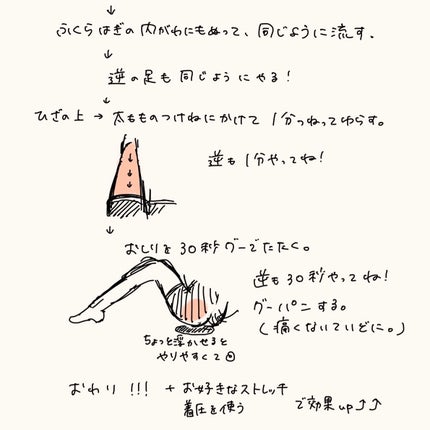 ↓
ふくらはぎの内がわにもぬって、同じように流す。
↓
逆の足も同じようにやる!
↓
ひざの上→太もものつけねにかけて1分つねってゆらす。
逆も1分やってね!
↓
おしりを30秒グーでたたく。
逆も30秒やってね!
グーパンする。
(痛くないていどに。)
ちょっと浮かせると
やりやすくて◎
おわり!!! + お好きなストレッチ
着圧を使う
で効果up⤴⤴